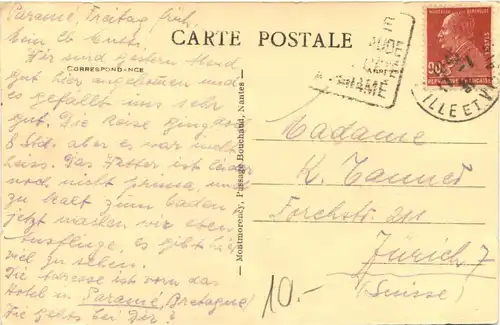 Paramé, Freitag früh.
Mein lb Mutti.
CARTE POSTALE
Wir sind gestern Abend
CORRESPONDANCE
gut hier angekommen und
es gefällt uns sehr
gut. Die Reise ging
8 Std. aber es war
heiss. Das Wetter ist leider
noch nicht prima, und
zu kalt zum baden
jetzt machen wir eben
Ausflüge, es gibt hier
viel zu sehen.
Die Adresse ist vorn das
Hotel in Paramé, Bretagne
Wie gehts bei Dir?
Montmorency, Passage Bouchaud, Nantes
ADRESSE
RAMÉ
ILLE ET V
90
Madame
K. Tanner
Forchstr. 211
Zürich 7
(Suisse)
10.-